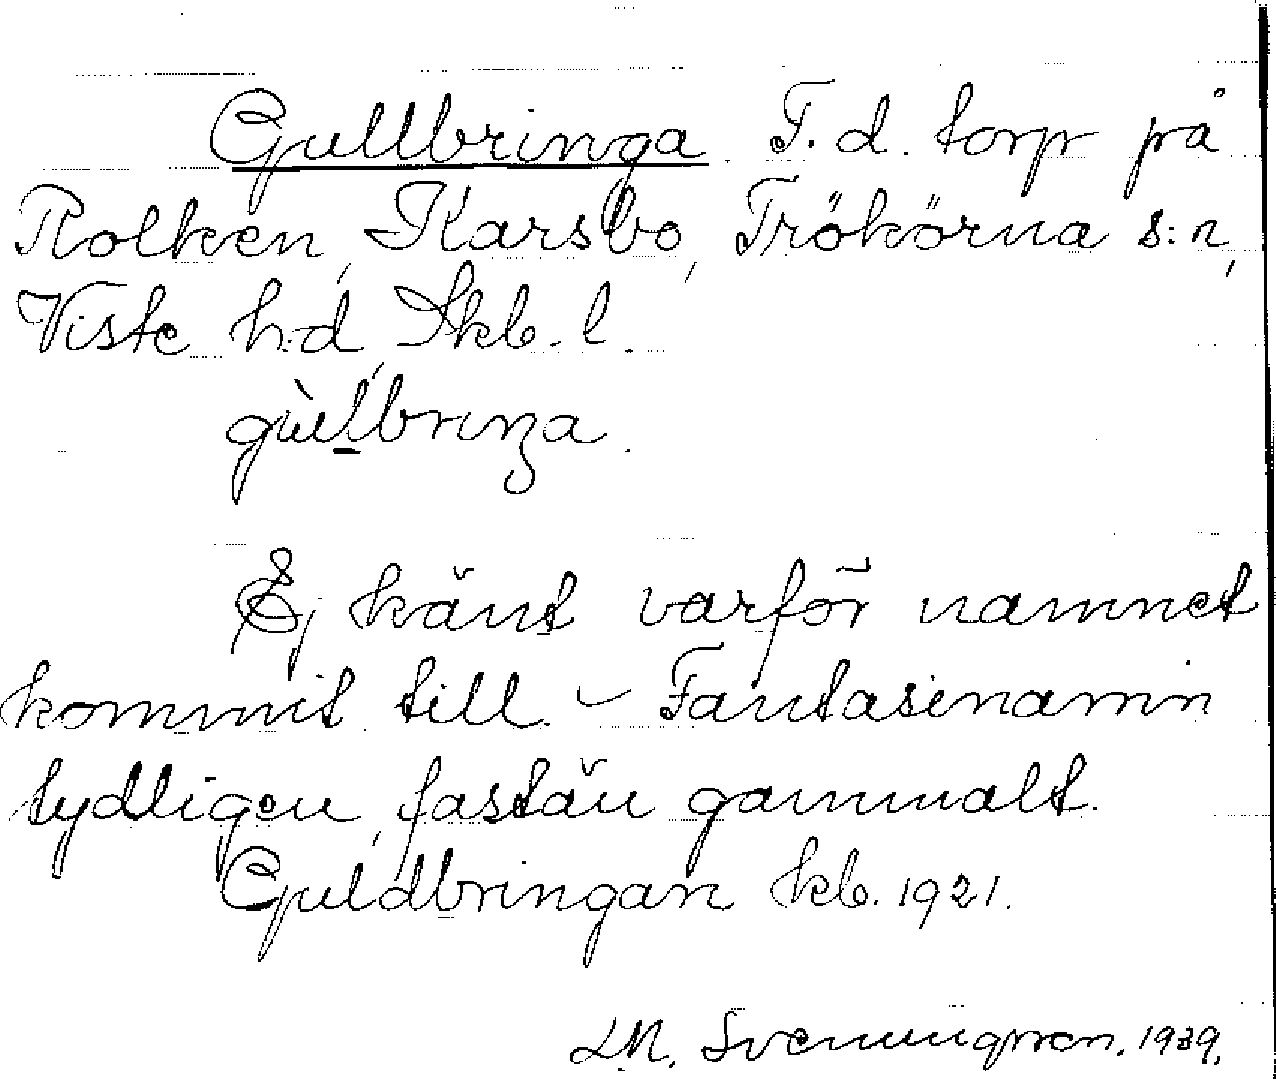 Gullbringa T. d. torp på
Rolken, Karsbo, Trökörna s:n,
Viste h:d, Skb. l.
gùl̠lbrıŋa.
Ej känt varför namnet
kommit till. – Fantasinamn
tydligen, fastän gammalt.
Guldbringan kb. 1921.
LM. Svenungsson. 1939.